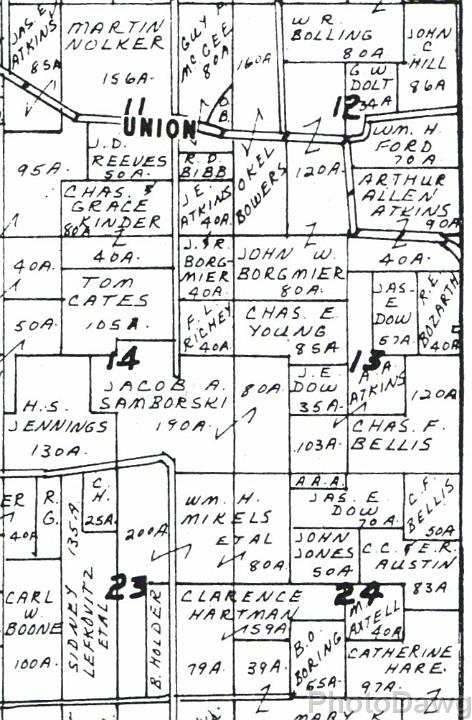 JAS. E.
ATKINS
85A
MARTIN
NOLKER
156A.
GUY
McGEE
80A
160A
W R.
BOLLING
80A
G W
DOLT
34A
JOHN
C
HILL
86A
11
UNION
O.
B.
12
WM. H.
FORD
70A
95A.
J.D.
REEVES
50A.
R. D.
BIBB
OKEL
BOWERS
120A.
ARTHUR
ALLEN
ATKINS
90A
CHAS. &
GRACE
KINDER
80A
J. E.
ATKINS
40A.
40A.
40A.
J. R.
BORG-
MIER
40A.
JOHN W.
BORGMIER
80A.
40A.
TOM
CATES
105A
50A.
F. L.
RICHEY
40A.
CHAS. E
YOUNG
85A
JAS.
E
DOW
57A
R. E.
BOZARTH
40A
14
13
JACOB A.
SAMBORSKI
190A.
80A.
J. E.
DOW
35A.
A. A.
ATKINS
120A.
H. S.
JENNINGS
130A.
103A.
CHAS. F.
BELLIS
ER
40A
R.
G.
135A.
C.
H.
25A.
200A.
WM. H.
MIKELS
ETAL
80A.
A.A.A.
JAS. E.
DOW
70A.
C. F.
BELLIS
50A
JOHN
JONES
50A
C.C. & E.R.
AUSTIN
83A
23
24
CARL
W.
BOONE
100A.
SIDNEY
LEFKOVITZ
ETAL
B. HOLDER
CLARENCE
HARTMAN
159A
79A.
39A.
B. O.
BORING
65A
M.
AXTELL
40A
CATHERINE
HARE.
97A.
PhotoDawg